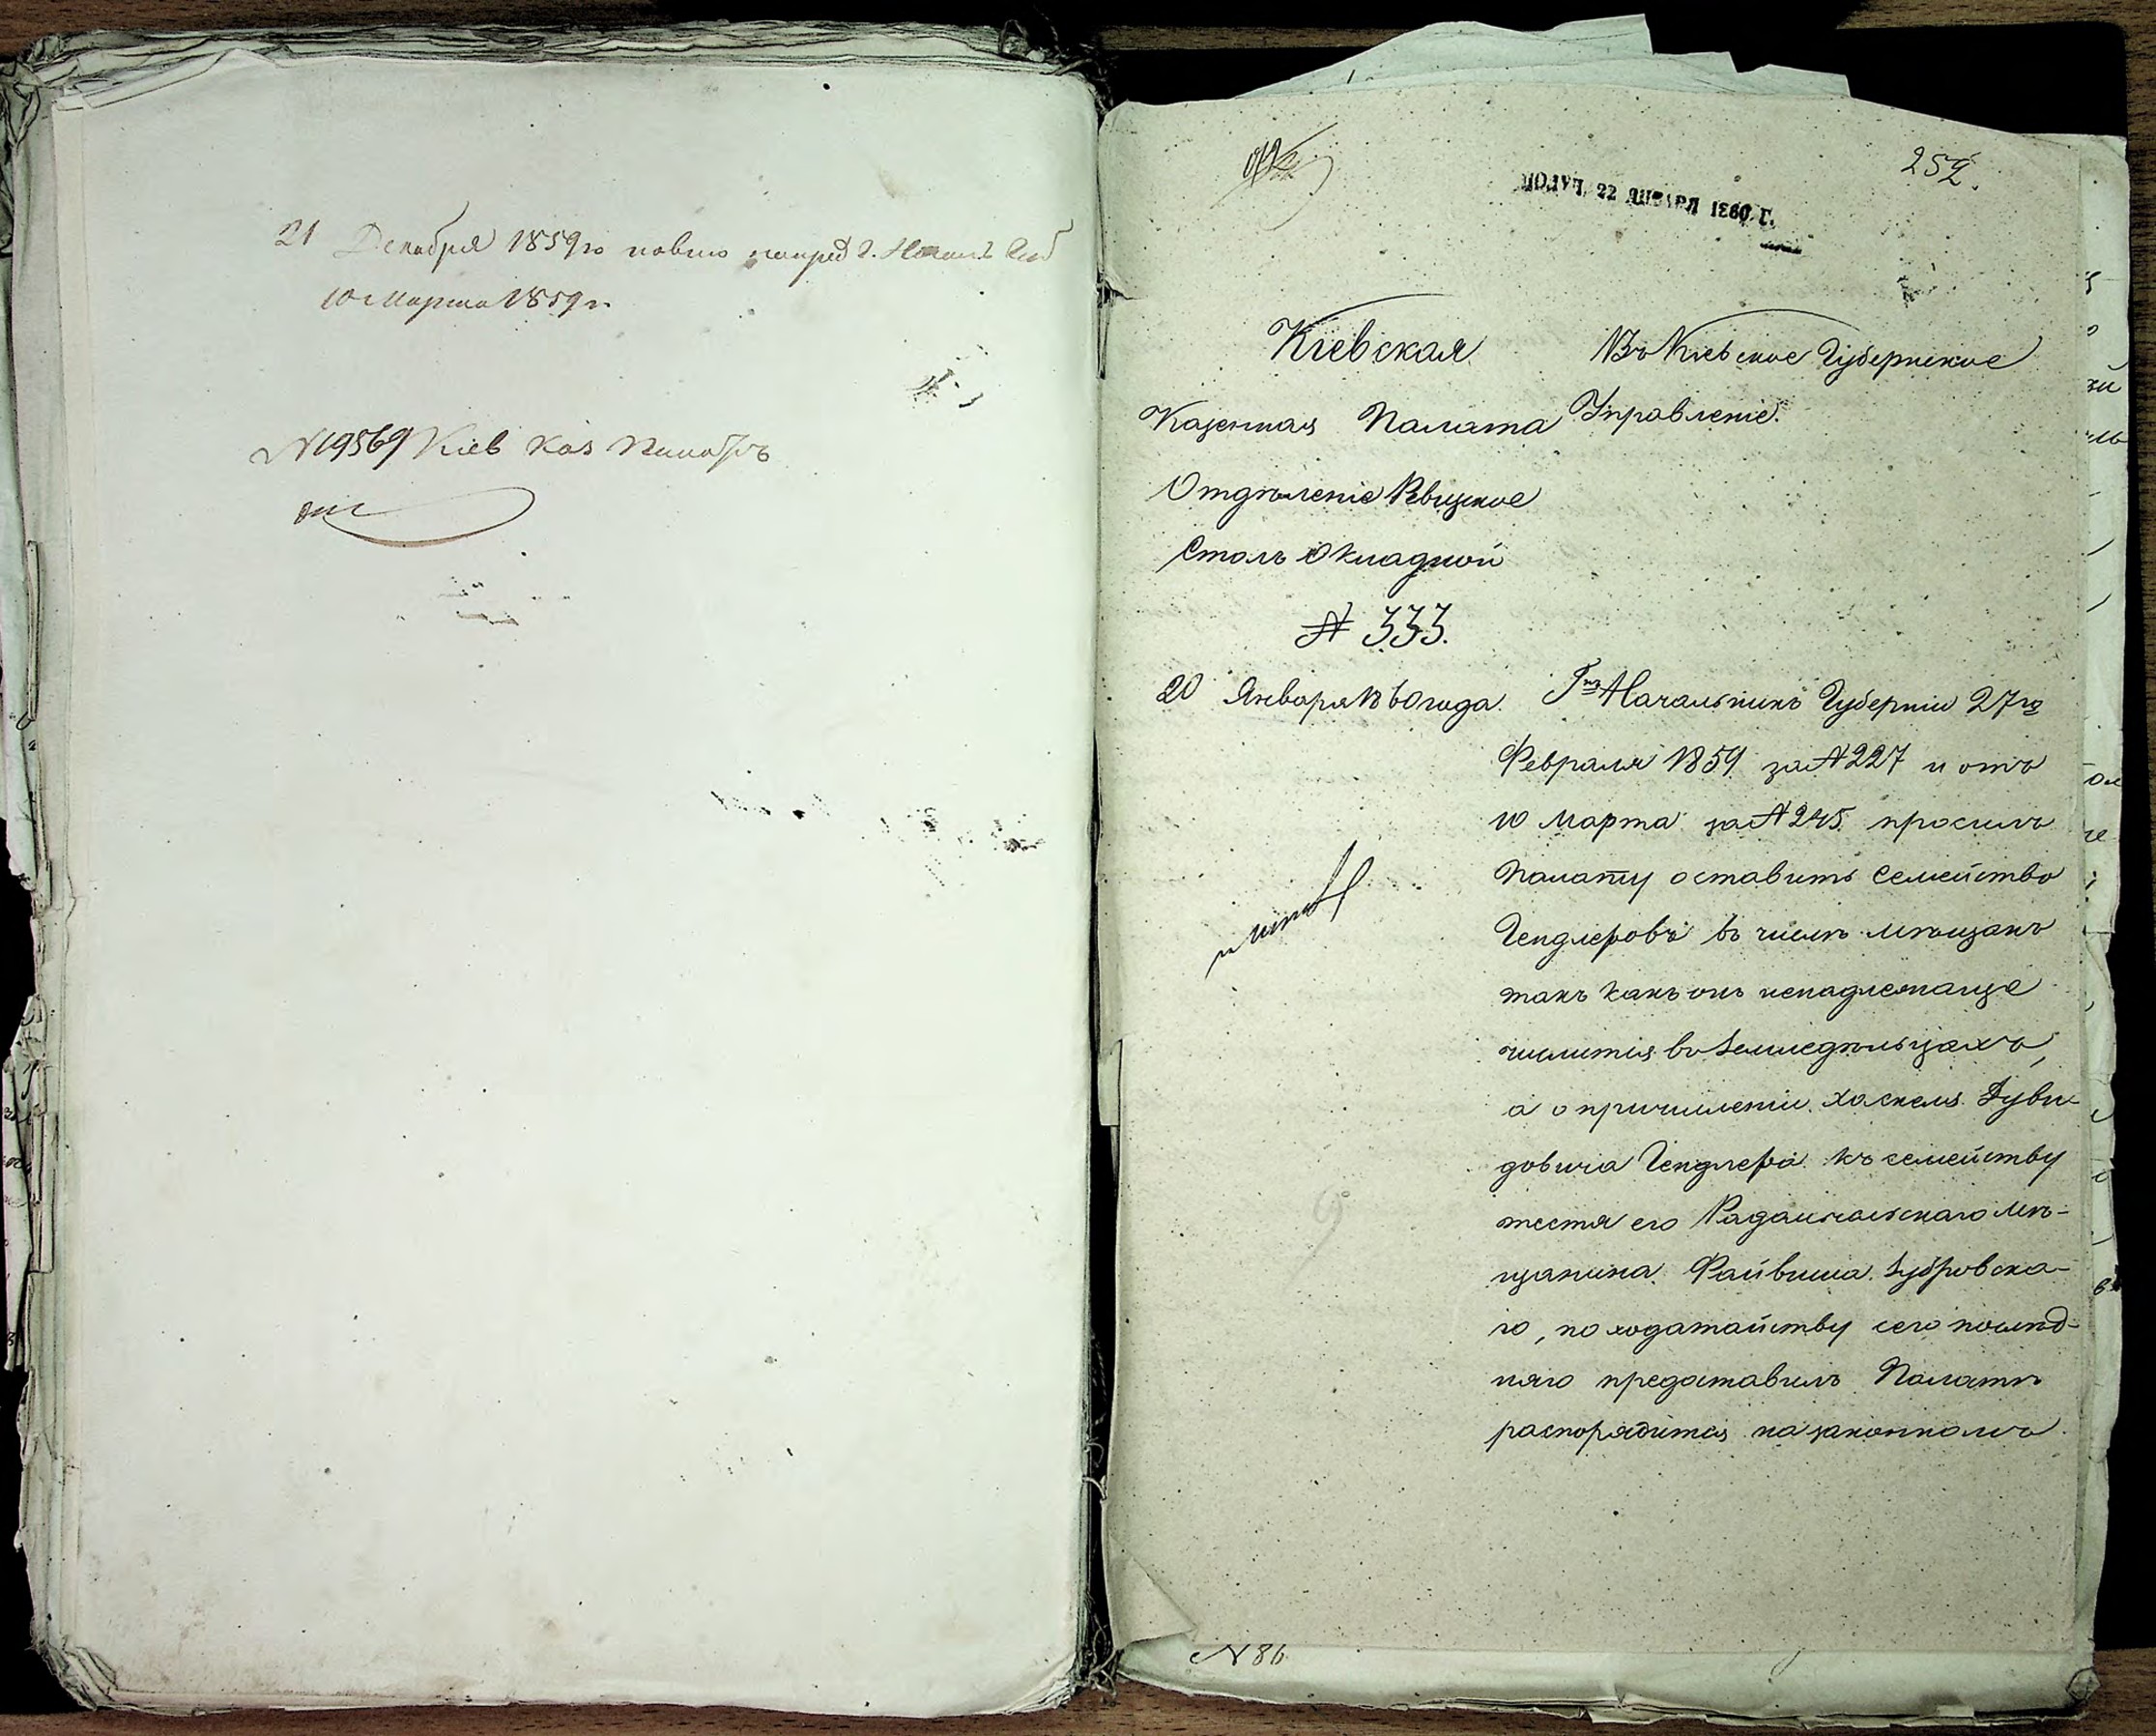 21 Декабря 1859 го
10 Марта 1859 г.
N 19569 Кіев Каз Палатѣ
252.
ПОЛУЧ. 22 ЯНВАРЯ 1860 Г.
Кіевская
Казенная Палата
Отдѣленіе Ревизкое
Столъ Окладной
№ 333.
20 Января 1860 года.
Въ Кіевское Губернское
Управленіе.
Гнъ Начальникъ Губерніи 27го
Февраля 1859 за № 227 и отъ
10 Марта за № 245 просилъ
Палату оставить семейство
Гендлеровъ въ числѣ мѣщанъ
такъ какъ онъ ненадлежаще
числится въ Земледѣльцахъ,
а о причисленіи Хаскеля Дуви-
довича Гендлера къ семейству
тестя его Радомысльскаго мѣ-
щанина Файвиша Дубровска-
го, по ходатайству сего послѣд-
няго предоставилъ Палатѣ
распорядится на законномъ
N 86